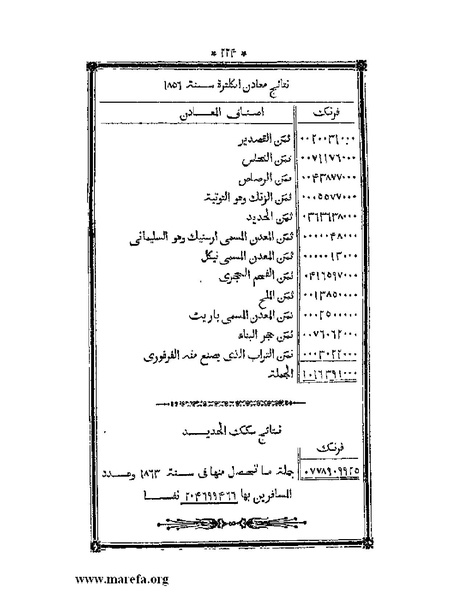 * ٢٢٤ *
نتائج معادن انكلترة سنة ١٨٥٦
فرنك اصناف المعادن
٠٠٢٠٠٣١٠٠٠ ثمن القصدير
٠٠٧١١٧٦٠٠٠ ثمن النحاس
٠٠٤٣٨٧٧٠٠٠ ثمن الرصاص
٠٠٠٥٥٧٧٠٠٠ ثمن الزنك وهو التوتية
٠٣٦٣٦٣٨٠٠٠ ثمن الحديد
٠٠٠٠٠٤٨٠٠٠ ثمن المعدن المسمى ارسنيك وهو السليمانى
٠٠٠٠٠١٣٠٠٠ ثمن المعدن المسمى نيكل
٠٤١٦٥٩٧٠٠٠ ثمن الفحم الحجرى
٠٠١٣٨٥٠٠٠٠ ثمن الملح
٠٠٠٢٥٠٠٠٠٠ ثمن المعدن المسمى باريت
٠٠٧٦٠٦٢٠٠٠ ثمن حجر البناء
٠٠٠٣٠٢٢٠٠٠ ثمن التراب الذى يصنع منه الفرفورى
١٠١٦٣٩١٠٠٠ الجملة
نتائج سكك الحديد
فرنك
٠٧٧٨٩٠٩٩٢٥ جملة ما تحصل منها فى سنة ١٨٦٣ وعدد
المسافرين بها ٢٠٤٦٩٩٤٦٦ نفسا
www.marefa.org